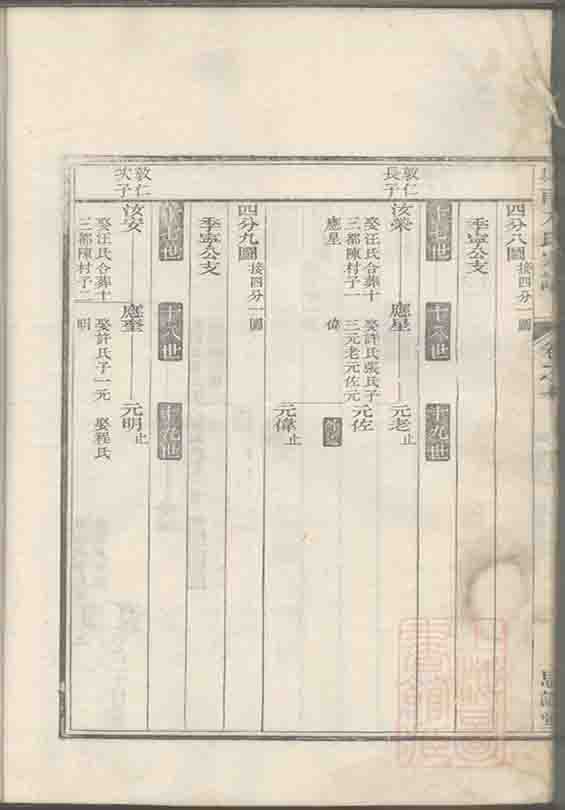 四分八圖接四分一圖
季寧公支
十七世
十八世
十九世
敦仁長子
汝榮
娶汪氏合葬十三都陳村子一應星
應星
娶許氏張氏子三元老元佐元偉
元老止
元佐
元偉止
四分九圖接四分一圖
季寧公支
十七世
十八世
十九世
敦仁次子
汝安
娶汪氏合葬十三都陳村子二
應奎
娶許氏子一元明
元明止
娶程氏